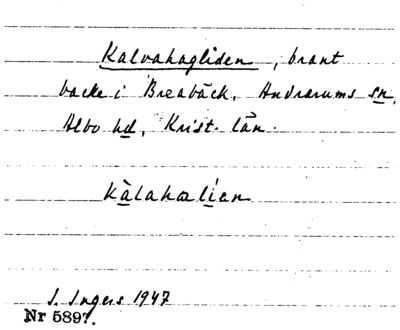 Kalvahagliden, brant
backe i Breabäck. Andrarums sn,
Albo hd, Krist. län.
kàlahalíen
I. Ingers 1947
Nr 5897.